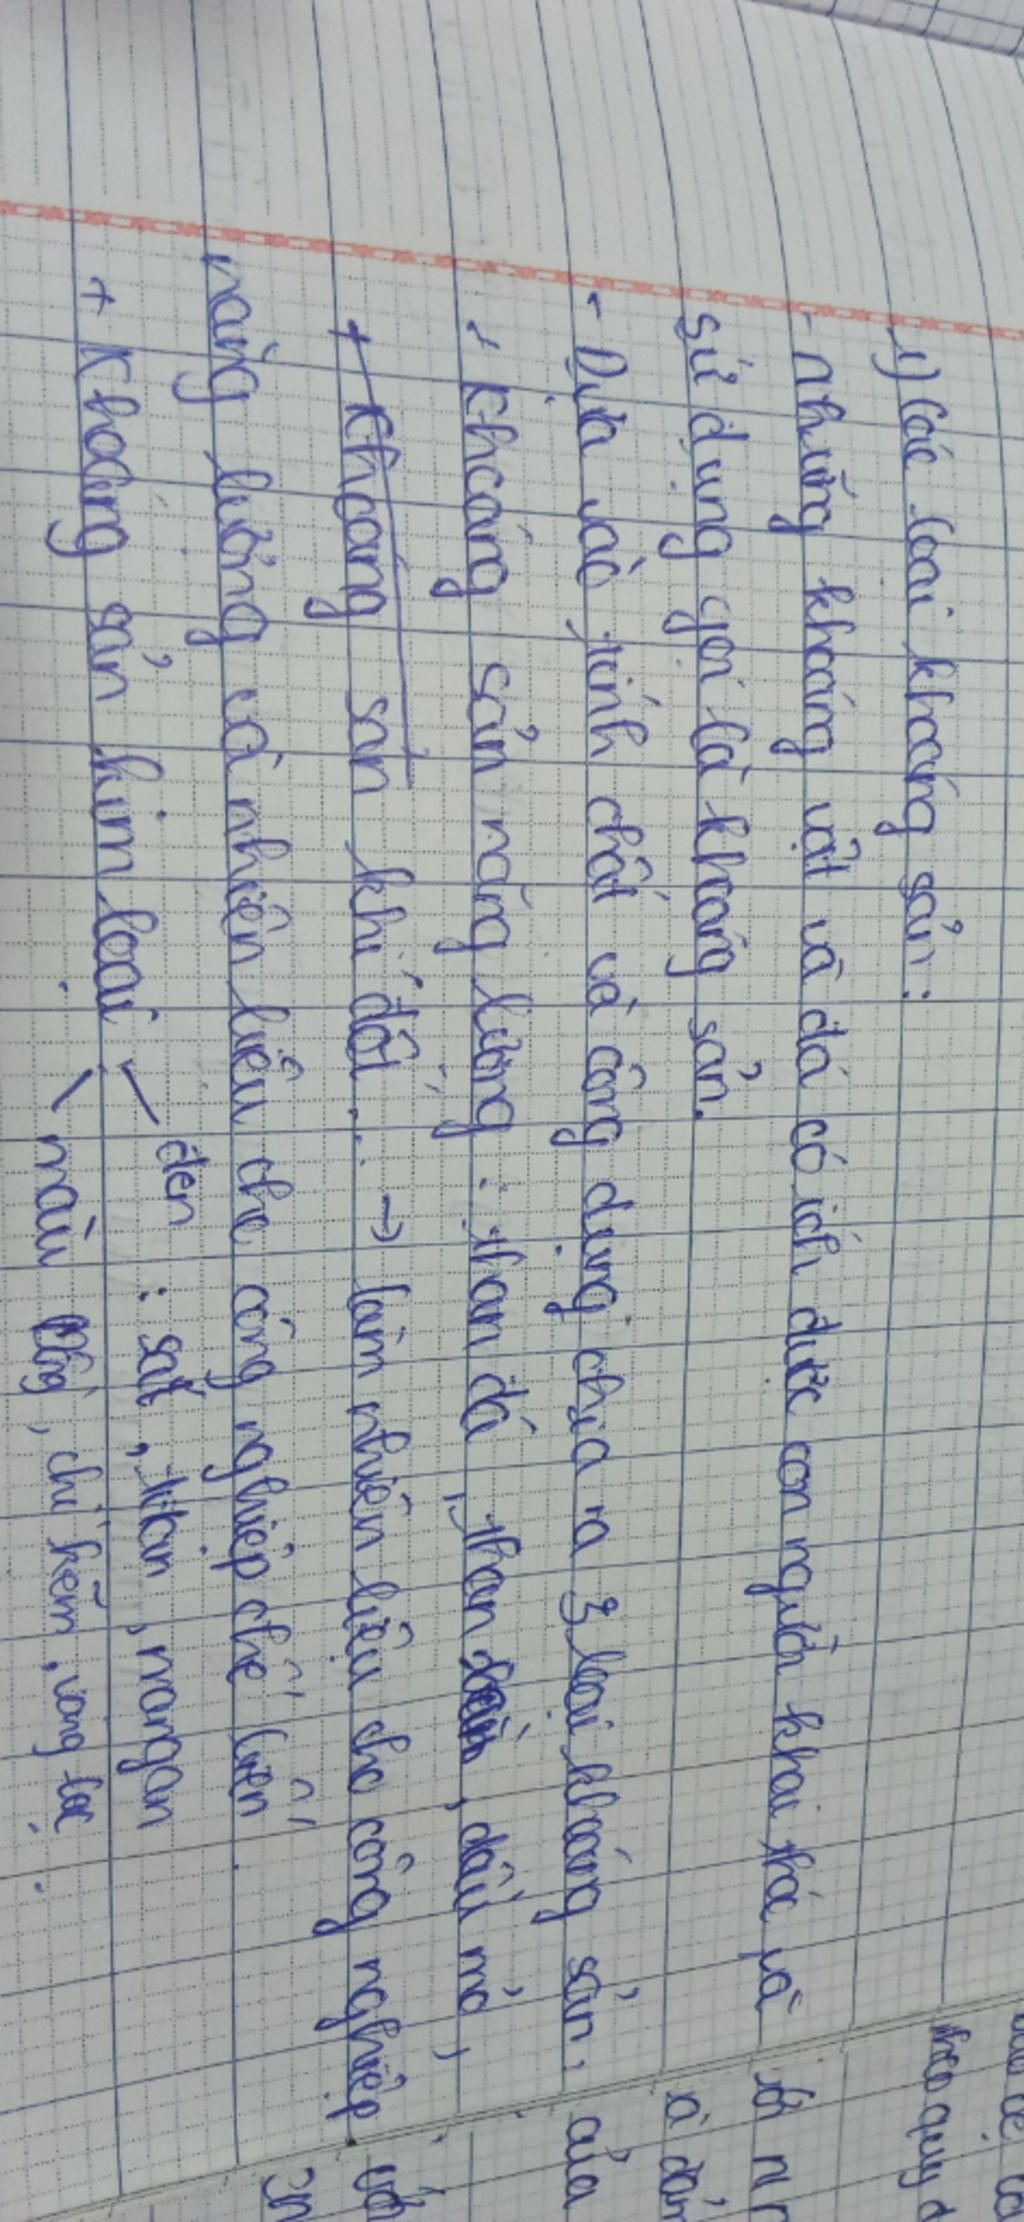 1) Các loại khoáng sản:
- những khoáng vật và đá có ích được con người khai thác và
sử dụng gọi là khoáng sản.
- Dựa vào tính chất và công dụng chia ra 3 loại khoáng sản:
+ Khoáng sản năng lượng: than đá, than, dầu mỏ,
khí đốt... → làm nhiên liệu cho công nghiệp
năng lượng và nhiên liệu cho công nghiệp chế biến.
+ Khoáng sản kim loại
đen: sắt, titan, mangan
màu đồng, chì, kẽm, vàng
theo quy
của